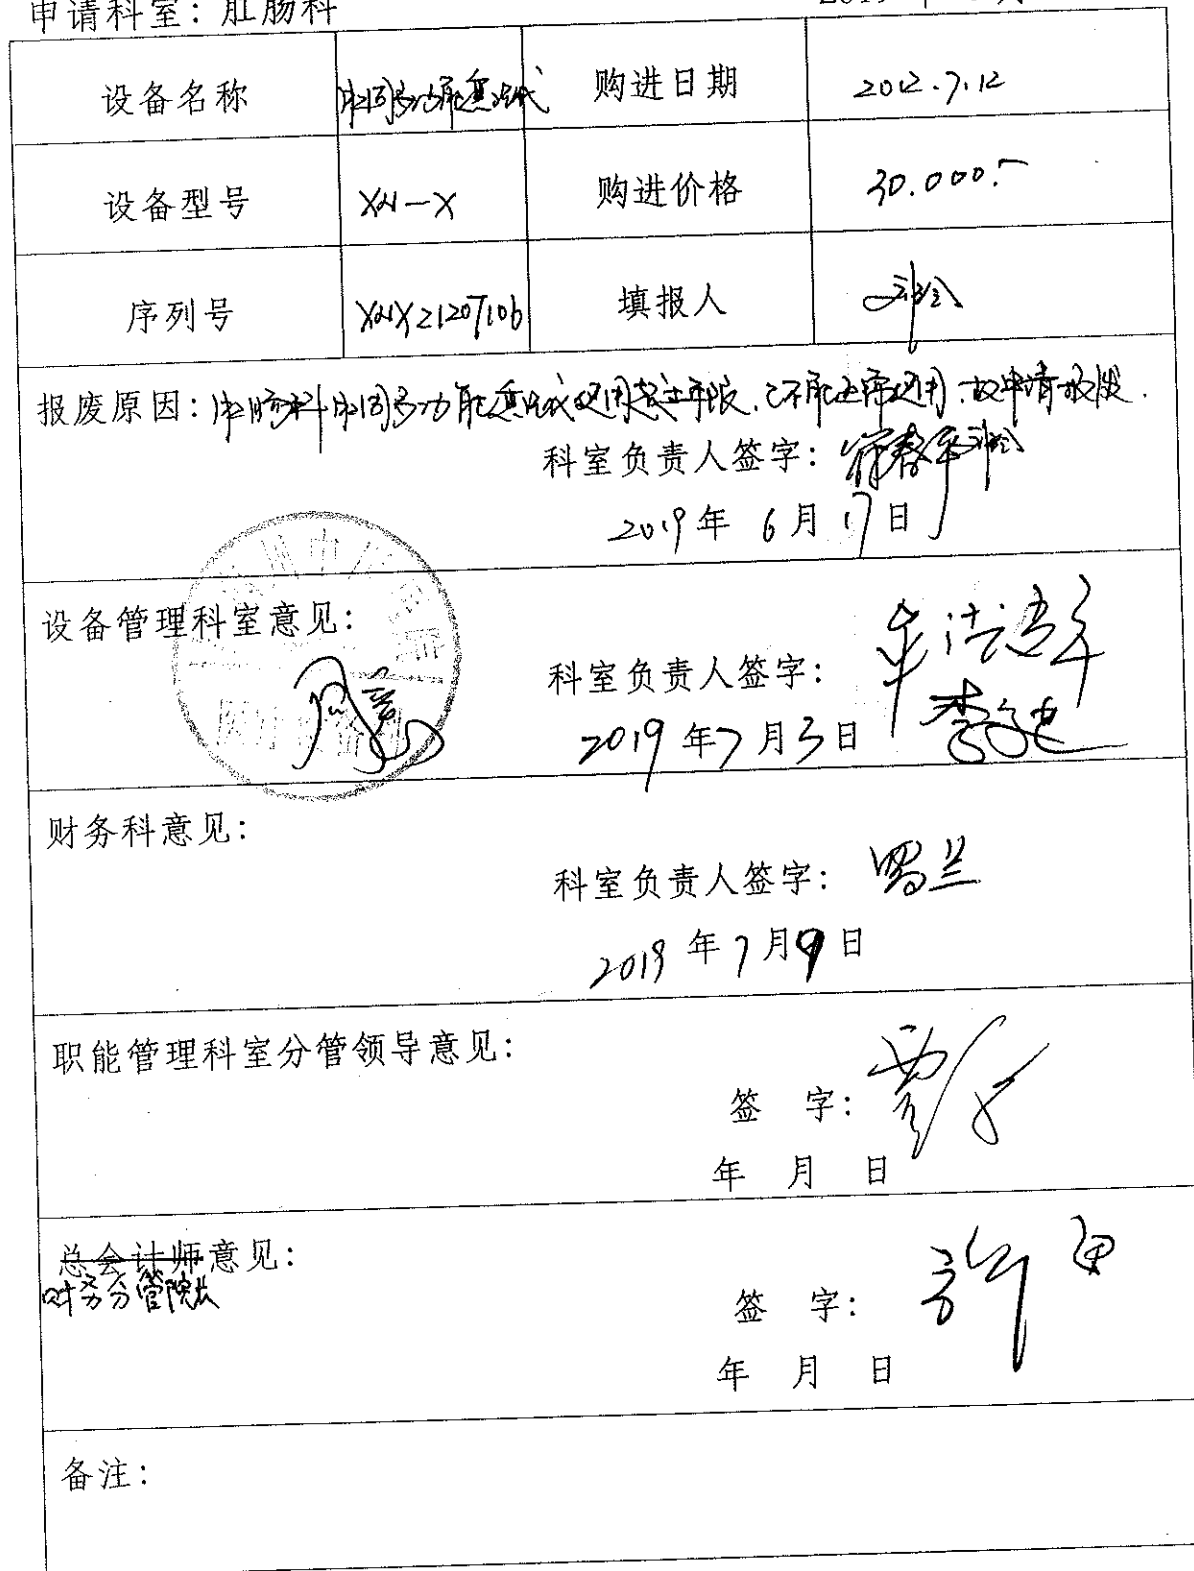 申请科室：肛肠科
设备名称 肛周多功能熏洗仪 购进日期 2012.7.12
设备型号 XN-X 购进价格 30.000.-
序列号 XNX21207106 填报人
报废原因：肛肠科肛周多功能熏洗仪使用超过年限，已不能正常使用，故申请报废.
科室负责人签字：
2019年 6月 17日
设备管理科室意见：
科室负责人签字：
2019年7月3日
财务科意见：
科室负责人签字：罗兰
2019年7月9日
职能管理科室分管领导意见：
签 字：
年 月 日
总会计师意见：
财务分管院长
签 字：
年 月 日
备注：